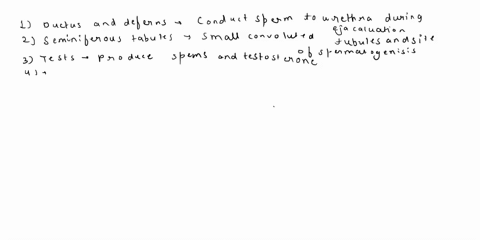 1) Ductus and deferns → Conduct sperm to urethna during ejacaluation
2) Seminiferous tabules → small convoluted tubules and site of spermatogenisis
3) Tests → Produce spems and testosterone
4)